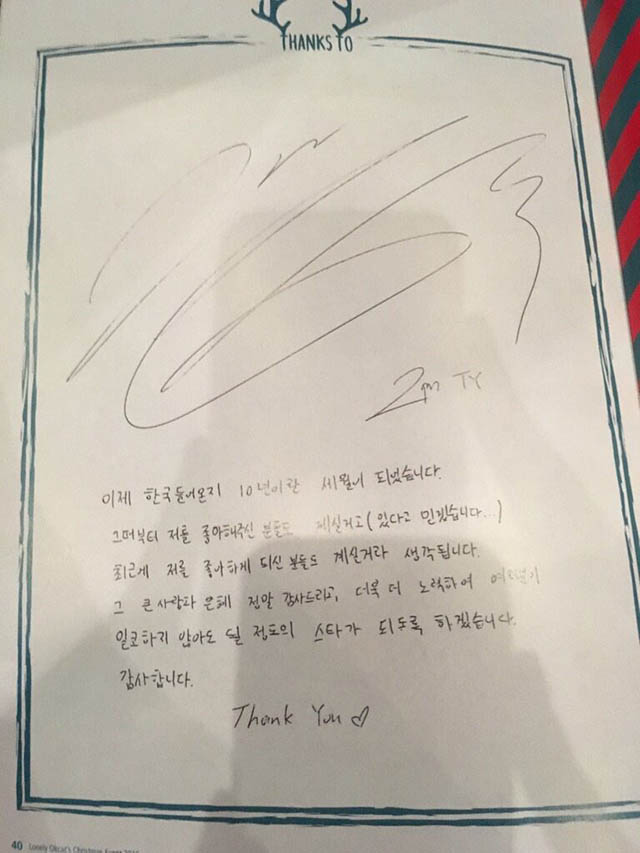 THANKS TO
2pm TY
이제 한국들어온지 10년이란 세월이 되었습니다.
그때부터 저를 좋아해주신 분들도 계실거고(있다고 믿겠습니다...)
최근에 저를 좋아하게 되신 분들도 계실거라 생각됩니다.
그 큰 사랑과 은혜 정말 감사드리고, 더욱 더 노력하여 여러분이
일코하지 않아도 될 정도의 스타가 되도록 하겠습니다.
감사합니다.
Thank You ♡
40 Lonely Okcat's Christmas Event